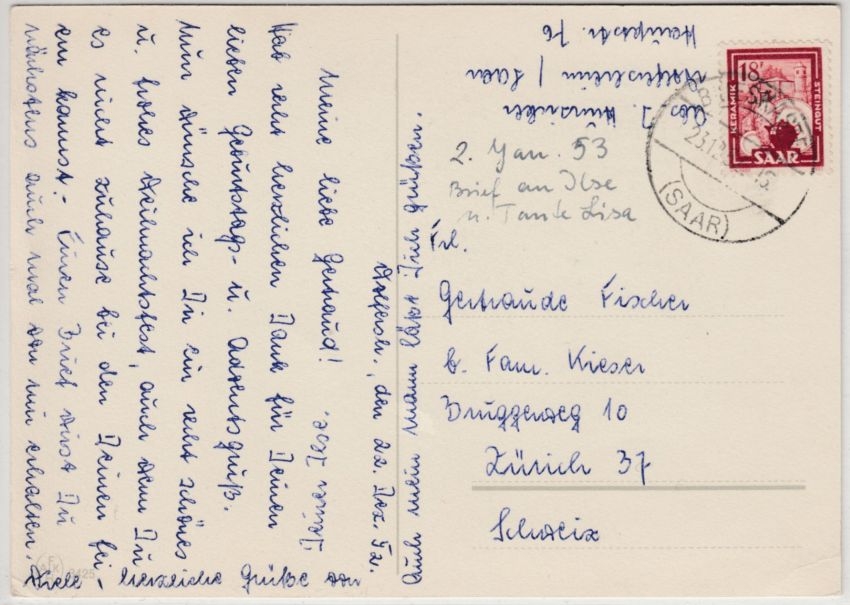 Wolfersh., den 22. Dez. 52.
Meine liebe Gertraud!
Hab recht herzlichen Dank für Deinen
lieben Geburtstags- u. Adventsgruß.
Nun wünsche ich Dir ein recht schönes
u. frohes Weihnachtsfest, auch wenn Du
es nicht zuhause bei den Deinen fei-
ern kannst. - Einen Brief wirst Du
nächstens auch mal von mir erhalten.
Viele, herzliche Grüße von
Deiner Ilse.
Auch mein Mann läßt Dich grüßen.
Abs. J. Hunsicker
Wolfersheim / Saar
Hauptstr. 76
2. Jan. 53
Brief an Ilse
u. Tante Lisa
Frl.
Gertraude Fischer
b. Fam. Kieser
Bruggerweg 10
Zürich 37
Schweiz
18F
KERAMIK
STEINGUT
SAAR
23.12
(SAAR)
AFK
8425